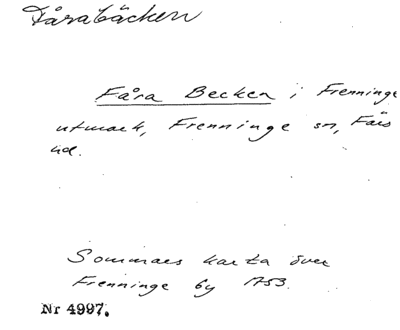 Fårabäcken
Fåra Becken i Frenninge
utmark, Frenninge sn, Färs
hd.
Sommars karta över
Frenninge by 1753.
Nr 4997.